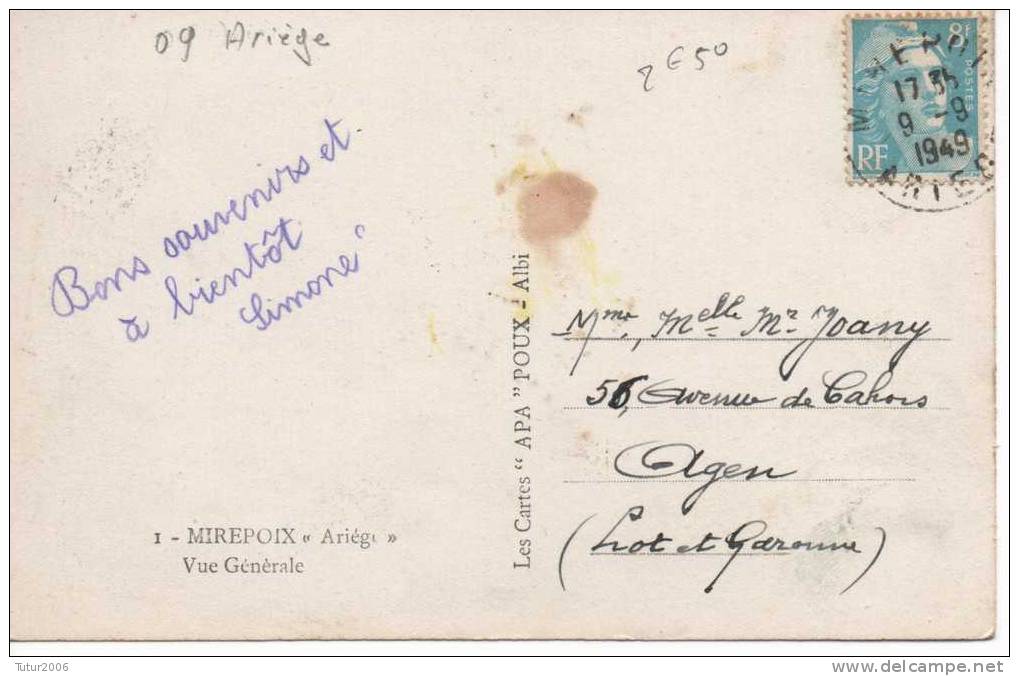 09 Ariège
2 € 50
8F
POSTES
RF
17 35
9 -9
1949
ARIEGE
Bons souvenirs et
à bientôt
Simone
Les Cartes "APA" POUX - Albi
Mme, Melle Mr Joany
56, Avenue de Cahors
Agen
(Lot et Garonne)
1 - MIREPOIX « Ariége »
Vue Générale
Tutur2006
www.delcampe.net